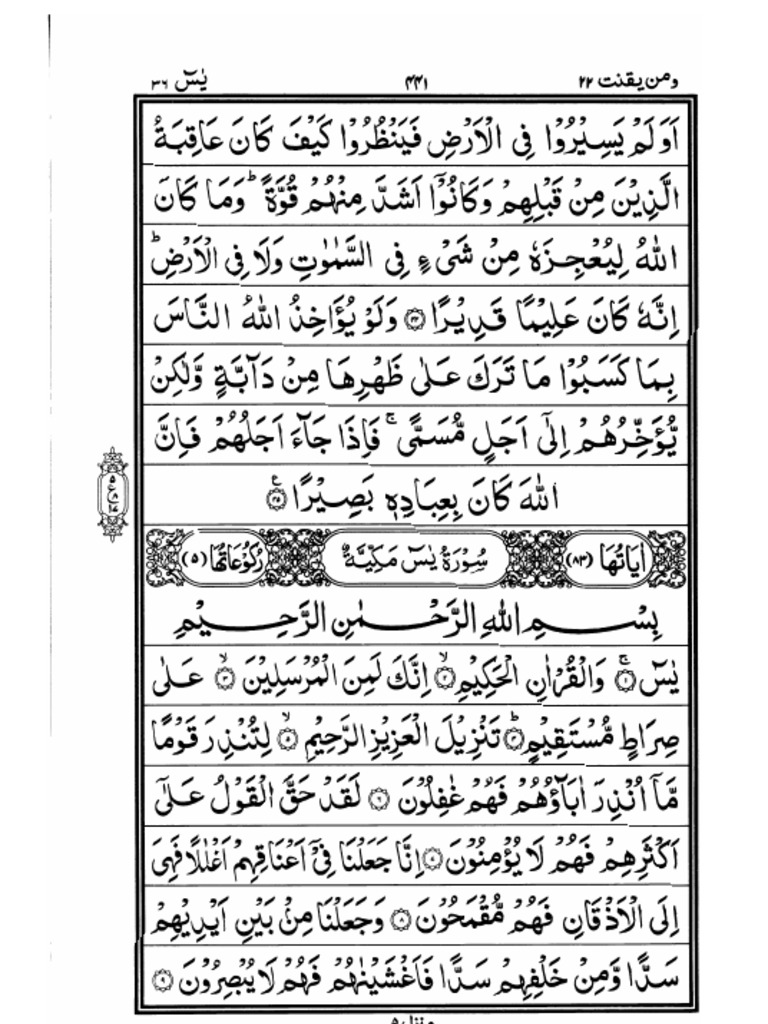 ومن یقنت ٢٢ ۴۴۱ یٰسٓ ٣٦
اَوَلَمْ يَسِيْرُوْا فِى الْاَرْضِ فَيَنْظُرُوْا كَيْفَ كَانَ عَاقِبَةُ
الَّذِيْنَ مِنْ قَبْلِهِمْ وَكَانُوْٓا اَشَدَّ مِنْهُمْ قُوَّةً ؕ وَمَا كَانَ
اللّٰهُ لِيُعْجِزَهٗ مِنْ شَىْءٍ فِى السَّمٰوٰتِ وَلَا فِى الْاَرْضِ ؕ
اِنَّهٗ كَانَ عَلِيْمًا قَدِيْرًا ﴿۴۴﴾ وَلَوْ يُؤَاخِذُ اللّٰهُ النَّاسَ
بِمَا كَسَبُوْا مَا تَرَكَ عَلٰى ظَهْرِهَا مِنْ دَآبَّةٍ وَّلٰكِنْ
يُّؤَخِّرُهُمْ اِلٰٓى اَجَلٍ مُّسَمًّى ۚ فَاِذَا جَآءَ اَجَلُهُمْ فَاِنَّ
اللّٰهَ كَانَ بِعِبَادِهٖ بَصِيْرًا ﴿۴۵﴾ ع
اٰيَاتُهَا (٨٣) سُوْرَةُ يٰسٓ مَكِّيَّةٌ رُكُوْعَاتُهَا (٥)
بِسْمِ اللّٰهِ الرَّحْمٰنِ الرَّحِيْمِ
يٰسٓ ۚ ﴿۱﴾ وَالْقُرْاٰنِ الْحَكِيْمِ ۙ ﴿۲﴾ اِنَّكَ لَمِنَ الْمُرْسَلِيْنَ ۙ ﴿۳﴾ عَلٰى
صِرَاطٍ مُّسْتَقِيْمٍ ؕ ﴿۴﴾ تَنْزِيْلَ الْعَزِيْزِ الرَّحِيْمِ ۙ ﴿۵﴾ لِتُنْذِرَ قَوْمًا
مَّآ اُنْذِرَ اٰبَآؤُهُمْ فَهُمْ غٰفِلُوْنَ ﴿۶﴾ لَقَدْ حَقَّ الْقَوْلُ عَلٰٓى
اَكْثَرِهِمْ فَهُمْ لَا يُؤْمِنُوْنَ ﴿۷﴾ اِنَّا جَعَلْنَا فِىْٓ اَعْنَاقِهِمْ اَغْلٰلًا فَهِىَ
اِلَى الْاَذْقَانِ فَهُمْ مُّقْمَحُوْنَ ﴿۸﴾ وَجَعَلْنَا مِنْۢ بَيْنِ اَيْدِيْهِمْ
سَدًّا وَّمِنْ خَلْفِهِمْ سَدًّا فَاَغْشَيْنٰهُمْ فَهُمْ لَا يُبْصِرُوْنَ ﴿۹﴾